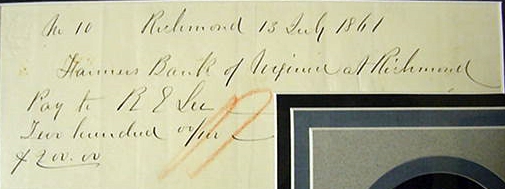 No 10 Richmond 13 July 1861
Farmers Bank of Virginia at Richmond
Pay to R E Lee
Two hundred 00/100
$200.00